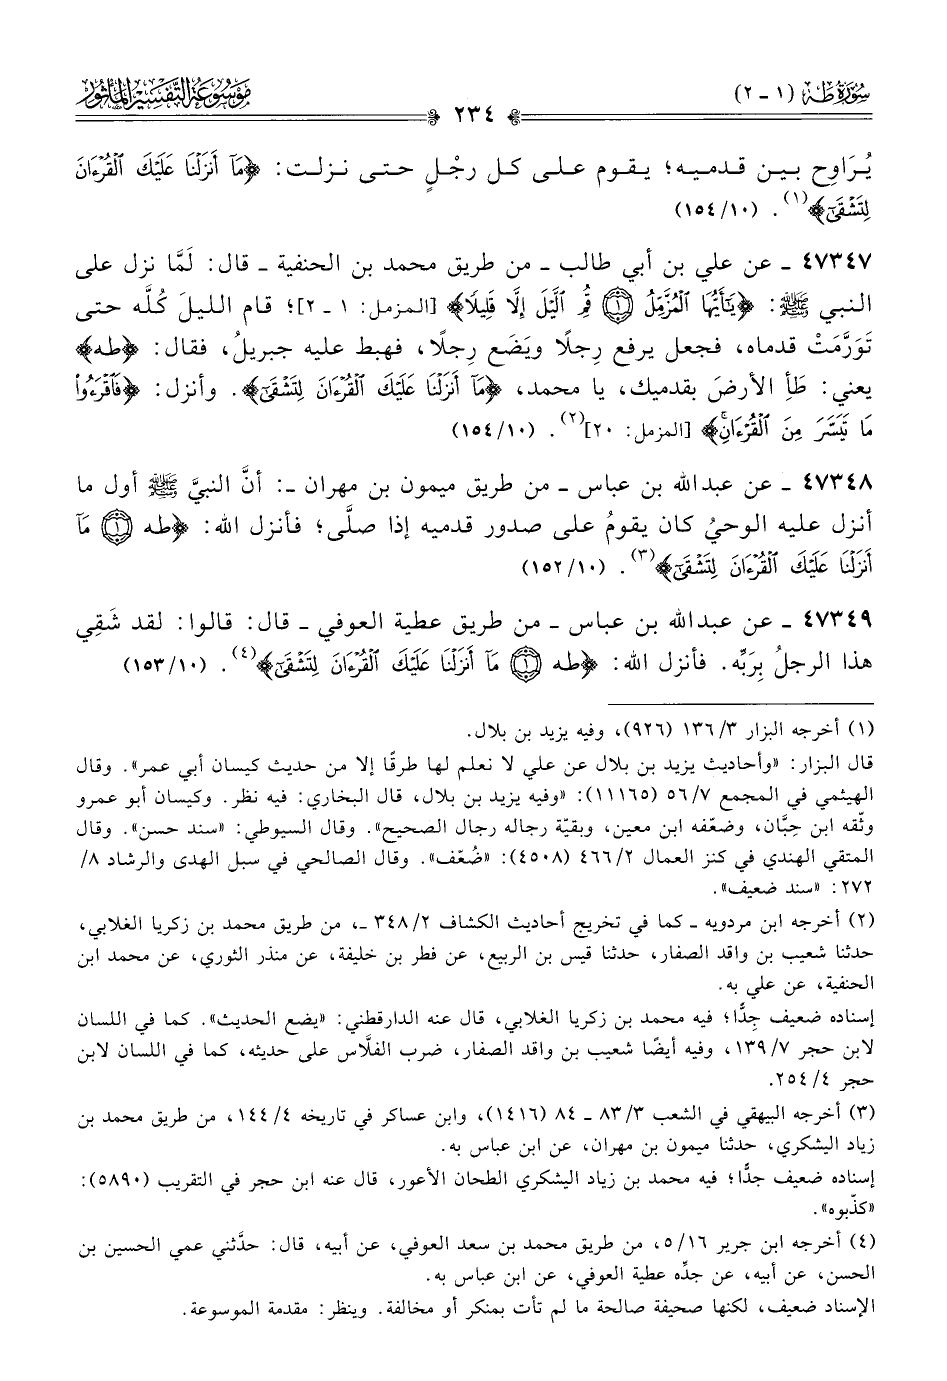 سُورَةُ طه (١ - ٢)
٢٣٤
مَوْسُوعَةُ التَّفْسِيرِ المَأْثُور
يُرَاوِح بين قدميه؛ يقوم على كل رجْلٍ حتى نزلت: ﴿مَآ أَنزَلْنَا عَلَيْكَ ٱلْقُرْءَانَ
لِتَشْقَىٰٓ﴾(١). (١٠/ ١٥٤)
٤٧٣٤٧ ـ عن علي بن أبي طالب ـ من طريق محمد بن الحنفية ـ قال: لَمَّا نزل على
النبي ﷺ: ﴿يَٰٓأَيُّهَا ٱلْمُزَّمِّلُ ١ قُمِ ٱلَّيْلَ إِلَّا قَلِيلًا﴾ [المزمل: ١ ـ ٢]؛ قام الليلَ كُلَّه حتى
تَوَرَّمَتْ قدماه، فجعل يرفع رِجلًا ويَضَع رِجلًا، فهبط عليه جبريلُ، فقال: ﴿طه﴾
يعني: طَأِ الأرضَ بقدميك، يا محمد، ﴿مَآ أَنزَلْنَا عَلَيْكَ ٱلْقُرْءَانَ لِتَشْقَىٰٓ﴾. وأنزل: ﴿فَٱقْرَءُوا۟
مَا تَيَسَّرَ مِنَ ٱلْقُرْءَانِ﴾ [المزمل: ٢٠](٢). (١٠/ ١٥٤)
٤٧٣٤٨ ـ عن عبدالله بن عباس ـ من طريق ميمون بن مهران ـ: أنَّ النبيَّ ﷺ أول ما
أنزل عليه الوحيُ كان يقومُ على صدور قدميه إذا صلَّى؛ فأنزل الله: ﴿طه ١ مَآ
أَنزَلْنَا عَلَيْكَ ٱلْقُرْءَانَ لِتَشْقَىٰٓ﴾(٣). (١٠/ ١٥٢)
٤٧٣٤٩ ـ عن عبدالله بن عباس ـ من طريق عطية العوفي ـ قال: قالوا: لقد شَقِي
هذا الرجلُ بِرَبِّه. فأنزل الله: ﴿طه ١ مَآ أَنزَلْنَا عَلَيْكَ ٱلْقُرْءَانَ لِتَشْقَىٰٓ﴾(٤). (١٠/ ١٥٣)
(١) أخرجه البزار ٣/ ١٣٦ (٩٢٦)، وفيه يزيد بن بلال.
قال البزار: «وأحاديث يزيد بن بلال عن علي لا نعلم لها طرقًا إلا من حديث كيسان أبي عمر». وقال
الهيثمي في المجمع ٧/ ٥٦ (١١١٦٥): «وفيه يزيد بن بلال، قال البخاري: فيه نظر. وكيسان أبو عمرو
وثّقه ابن حِبَّان، وضعّفه ابن معين، وبقيّة رجاله رجال الصحيح». وقال السيوطي: «سند حسن». وقال
المتقي الهندي في كنز العمال ٢/ ٤٦٦ (٤٥٠٨): «ضُعّف». وقال الصالحي في سبل الهدى والرشاد ٨/
٢٧٢: «سند ضعيف».
(٢) أخرجه ابن مردويه ـ كما في تخريج أحاديث الكشاف ٢/ ٣٤٨ ـ، من طريق محمد بن زكريا الغلابي،
حدثنا شعيب بن واقد الصفار، حدثنا قيس بن الربيع، عن فطر بن خليفة، عن منذر الثوري، عن محمد ابن
الحنفية، عن علي به.
إسناده ضعيف جدًّا؛ فيه محمد بن زكريا الغلابي، قال عنه الدارقطني: «يضع الحديث». كما في اللسان
لابن حجر ٧/ ١٣٩، وفيه أيضًا شعيب بن واقد الصفار، ضرب الفلَّاس على حديثه، كما في اللسان لابن
حجر ٤/ ٢٥٤.
(٣) أخرجه البيهقي في الشعب ٣/ ٨٣ ـ ٨٤ (١٤١٦)، وابن عساكر في تاريخه ٤/ ١٤٤، من طريق محمد بن
زياد اليشكري، حدثنا ميمون بن مهران، عن ابن عباس به.
إسناده ضعيف جدًّا؛ فيه محمد بن زياد اليشكري الطحان الأعور، قال عنه ابن حجر في التقريب (٥٨٩٠):
«كذّبوه».
(٤) أخرجه ابن جرير ١٦/ ٥، من طريق محمد بن سعد العوفي، عن أبيه، قال: حدَّثني عمي الحسين بن
الحسن، عن أبيه، عن جدِّه عطية العوفي، عن ابن عباس به.
الإسناد ضعيف، لكنها صحيفة صالحة ما لم تأت بمنكر أو مخالفة. وينظر: مقدمة الموسوعة.